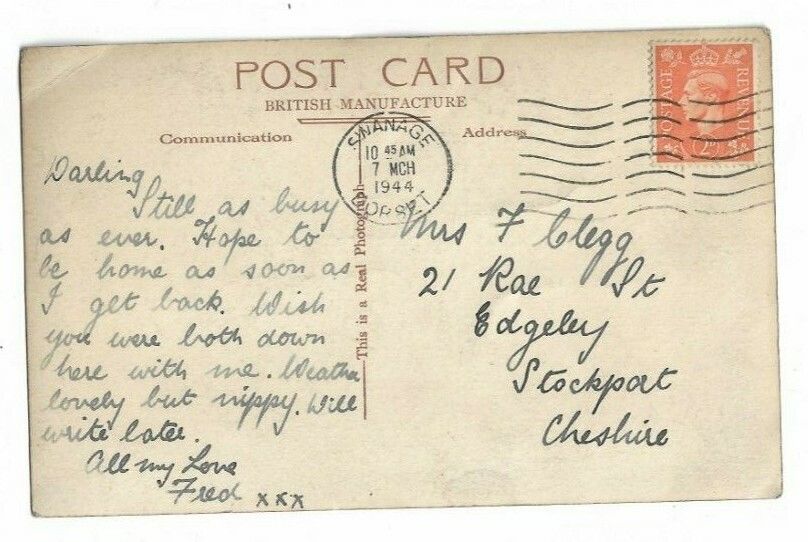 POST CARD
BRITISH MANUFACTURE
Communication
Address
SWANAGE
10 45 AM
7 MCH
1944
DORSET
POSTAGE
REVENUE
2D
This is a Real Photograph
Darling
Still as busy
as ever. Hope to
be home as soon as
I get back. Wish
you were both down
here with me. Weather
lovely but nippy. Will
write later.
All my Love
Fred xxx
Mrs F Clegg
21 Rae St
Edgeley
Stockport
Cheshire